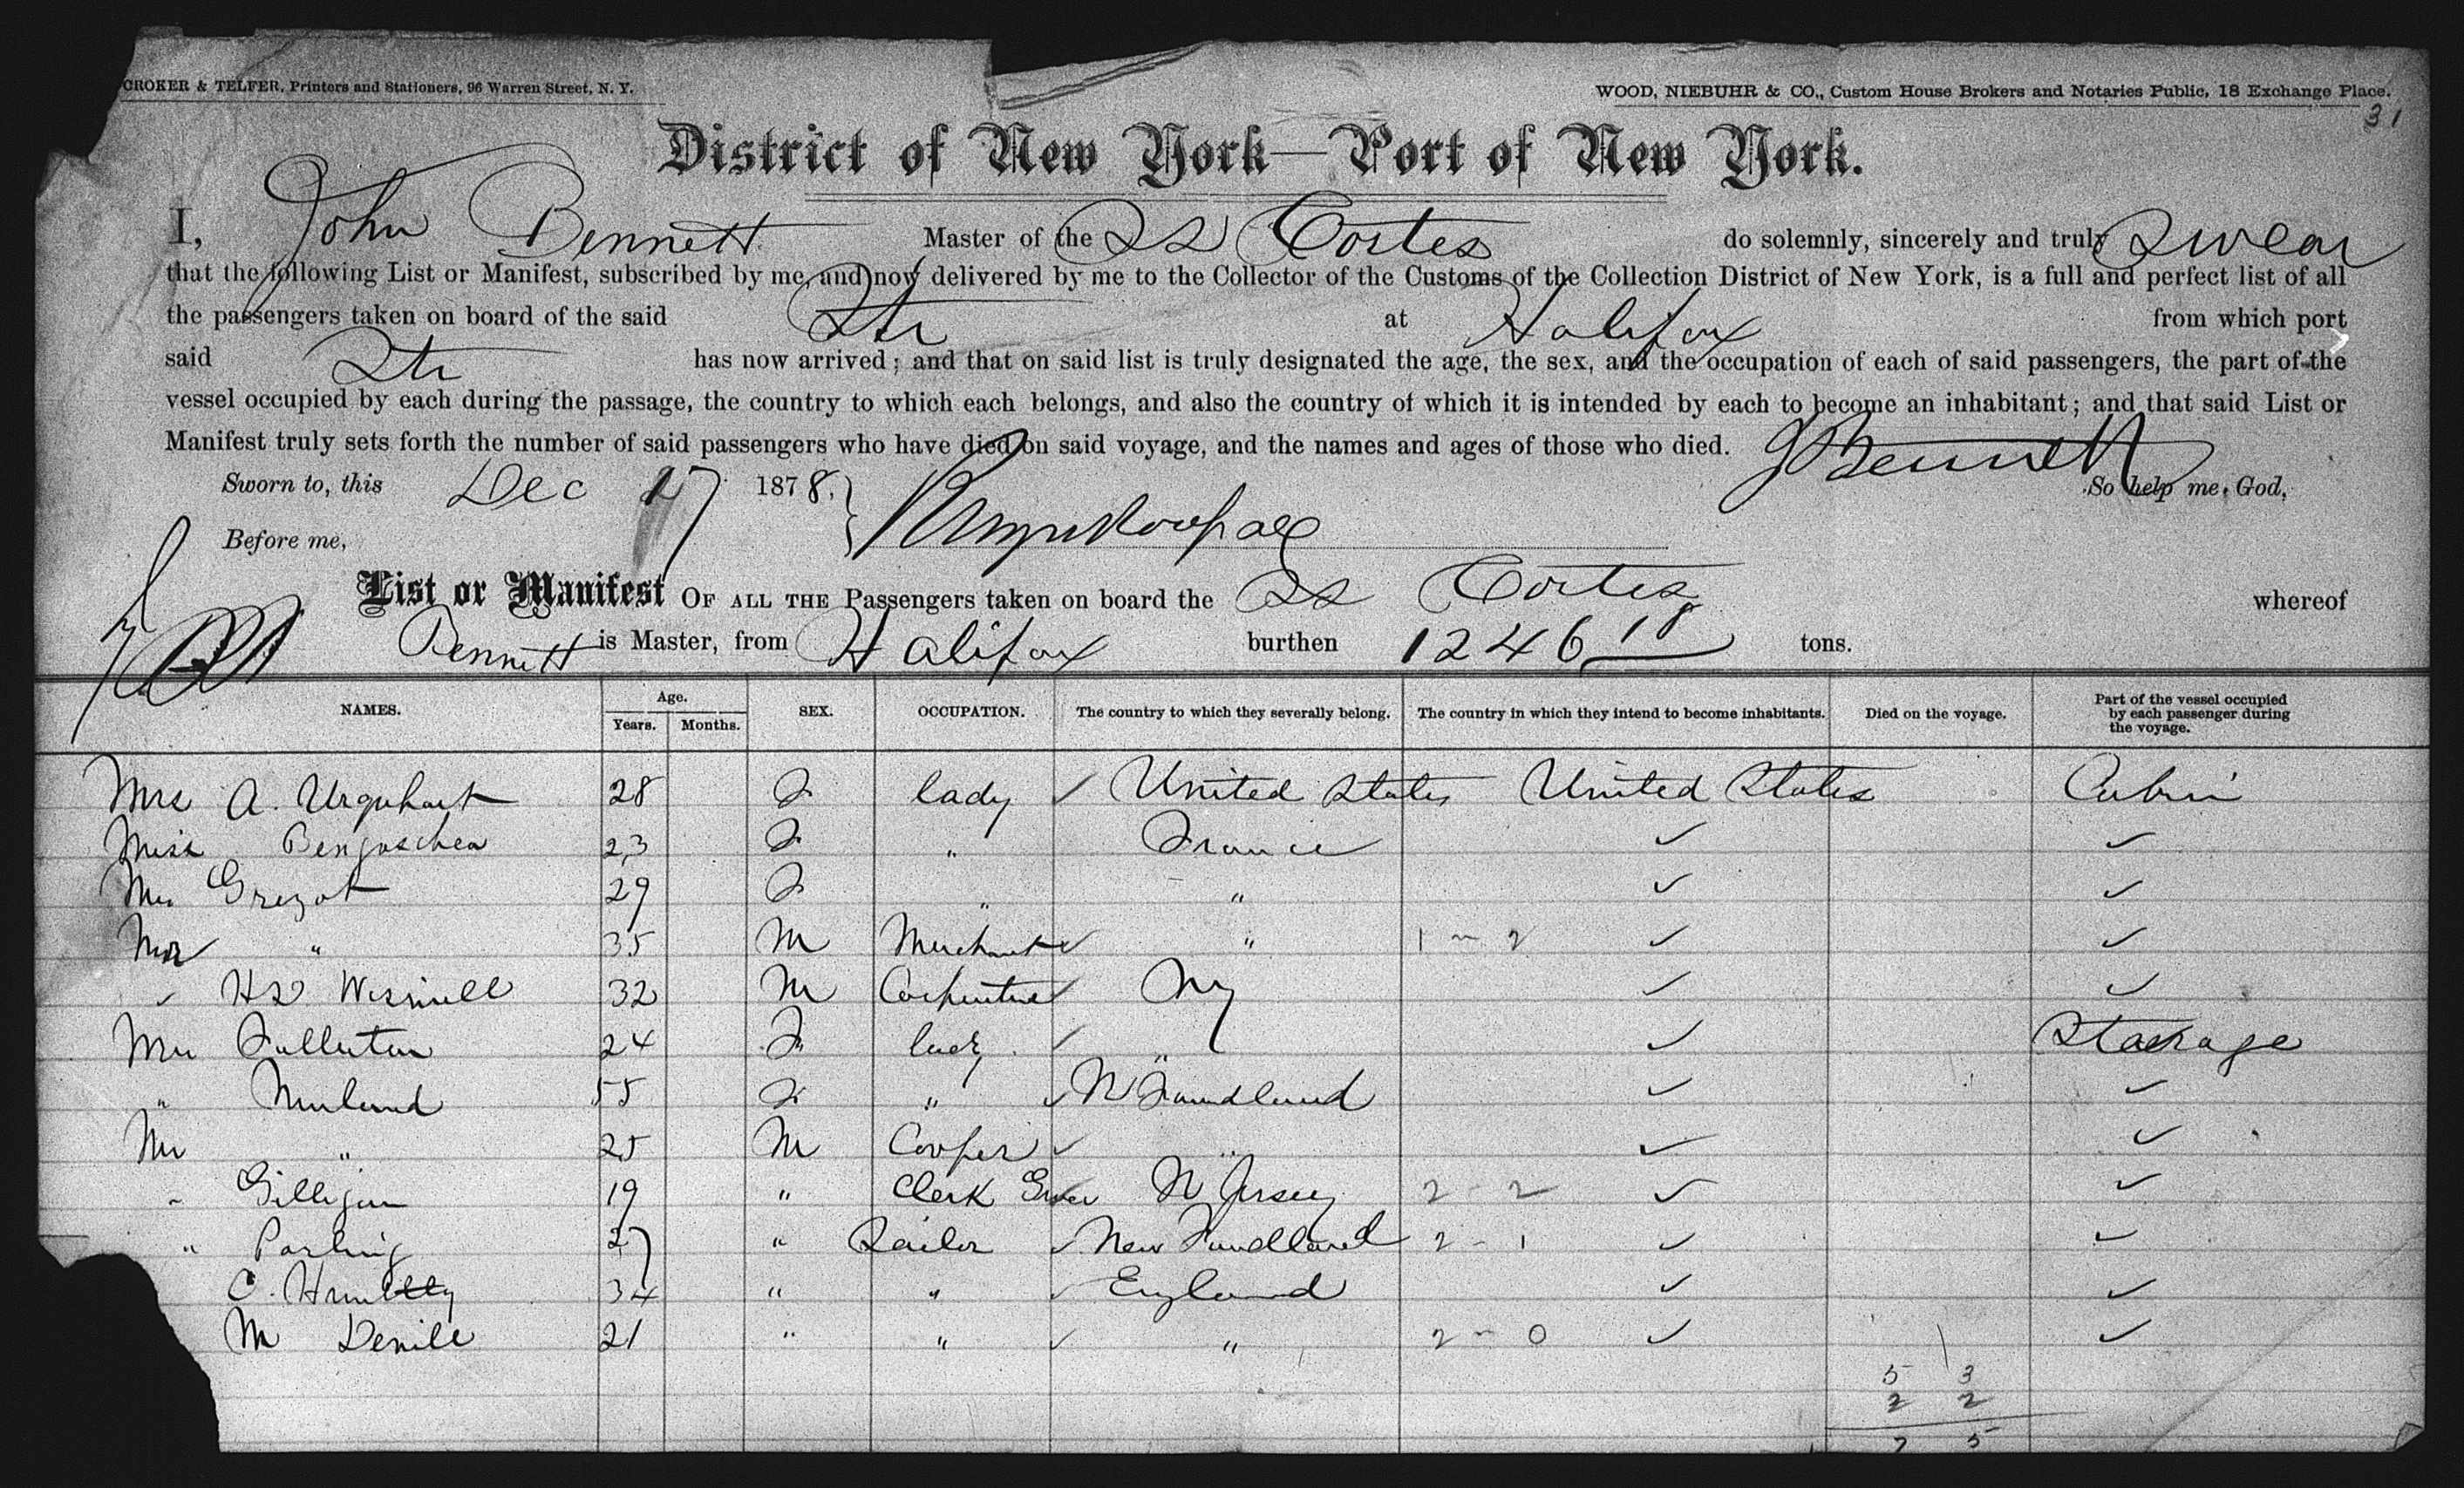 CROKER & TELFER, Printers and Stationers, 96 Warren Street, N. Y.
WOOD, NIEBUHR & CO., Custom House Brokers and Notaries Public, 18 Exchange Place.
31
District of New York—Port of New York.
I, John Bennett Master of the SS Cortes do solemnly, sincerely and truly Swear
that the following List or Manifest, subscribed by me, and now delivered by me to the Collector of the Customs of the Collection District of New York, is a full and perfect list of all
the passengers taken on board of the said Str at Halifax from which port
said Str has now arrived; and that on said list is truly designated the age, the sex, and the occupation of each of said passengers, the part of the
vessel occupied by each during the passage, the country to which each belongs, and also the country of which it is intended by each to become an inhabitant; and that said List or
Manifest truly sets forth the number of said passengers who have died on said voyage, and the names and ages of those who died. J Bennett
Sworn to, this Dec 27 1878. So help me, God,
Before me,
List or Manifest OF ALL THE Passengers taken on board the SS Cortes whereof
Bennett is Master, from Halifax burthen 1246 18 tons.
NAMES. Age. Years. Months. SEX. OCCUPATION. The country to which they severally belong. The country in which they intend to become inhabitants. Died on the voyage. Part of the vessel occupied by each passenger during the voyage.
Mrs A. Urquhart 28 F lady ✓ United States United States Cabin
Miss 23 F " France ✓ ✓
Mrs Grezot 29 F " " ✓ ✓
Mr " 35 M Merchant ✓ " 1 - 2 ✓ ✓
" HS 32 M Carpenter ✓ NY ✓ ✓
Mrs Fullerton 24 F lady ✓ " ✓ Stearage
" 55 F " ✓ N Foundland ✓ ✓
Mr " 25 M Cooper ✓ " ✓ ✓
" Gilligan 19 " Clerk N Jersey 2 - 2 ✓ ✓
" 27 " Sailor ✓ New Fundland 2 - 1 ✓ ✓
C. 34 " " ✓ England ✓ ✓
M 21 " " ✓ " 2 - 0 ✓ ✓
5 3
2 2
7 5